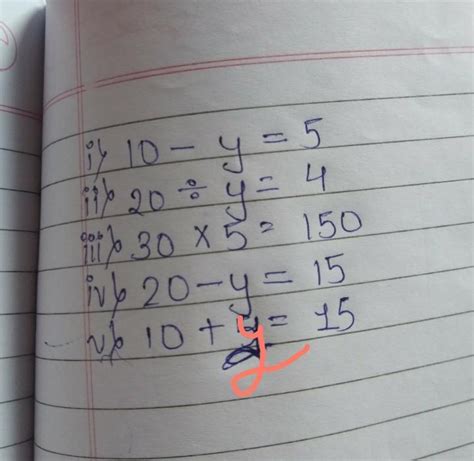 i) 10 - y = 5
ii) 20 ÷ y = 4
iii) 30 × 5 = 150
iv) 20 - y = 15
v) 10 + y = 15